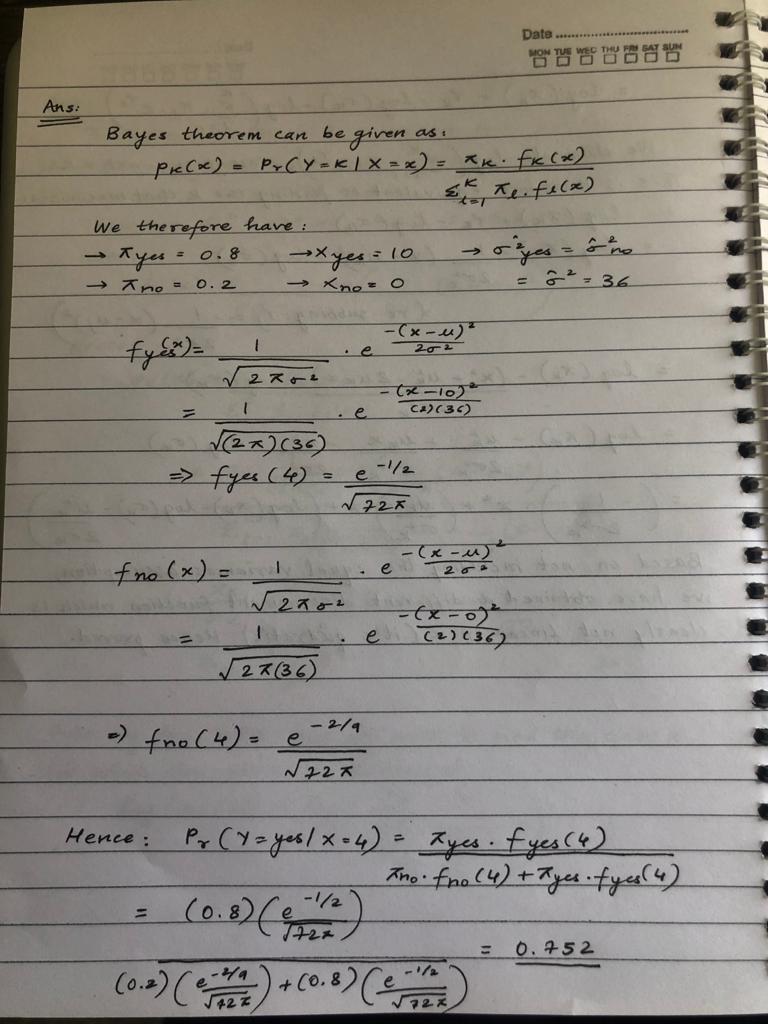 Date
MON TUE WED THU FRI SAT SUN
Ans:
Bayes theorem can be given as:
Pκ(x) = Pr(Y=K | X=x) = πκ. fκ(x) / Σ^K_{l=1} πl. fl(x)
We therefore have:
→ πyes = 0.8 → x̄yes = 10 → σ̂²yes = σ̂²no
→ πno = 0.2 → x̄no = 0 = σ̂² = 36
fyes(x) = 1 / √(2πσ²) . e^(-(x-μ)² / 2σ²)
= 1 / √((2π)(36)) . e^(-(x-10)² / (2)(36))
⇒ fyes(4) = e^(-1/2) / √(72π)
fno(x) = 1 / √(2πσ²) . e^(-(x-μ)² / 2σ²)
= 1 / √(2π(36)) . e^(-(x-0)² / (2)(36))
⇒ fno(4) = e^(-2/9) / √(72π)
Hence: Pr(Y=yes | X=4) = πyes. fyes(4) / πno. fno(4) + πyes. fyes(4)
= (0.8)(e^(-1/2) / √(72π)) / (0.2)(e^(-2/9) / √(72π)) + (0.8)(e^(-1/2) / √(72π)) = 0.752